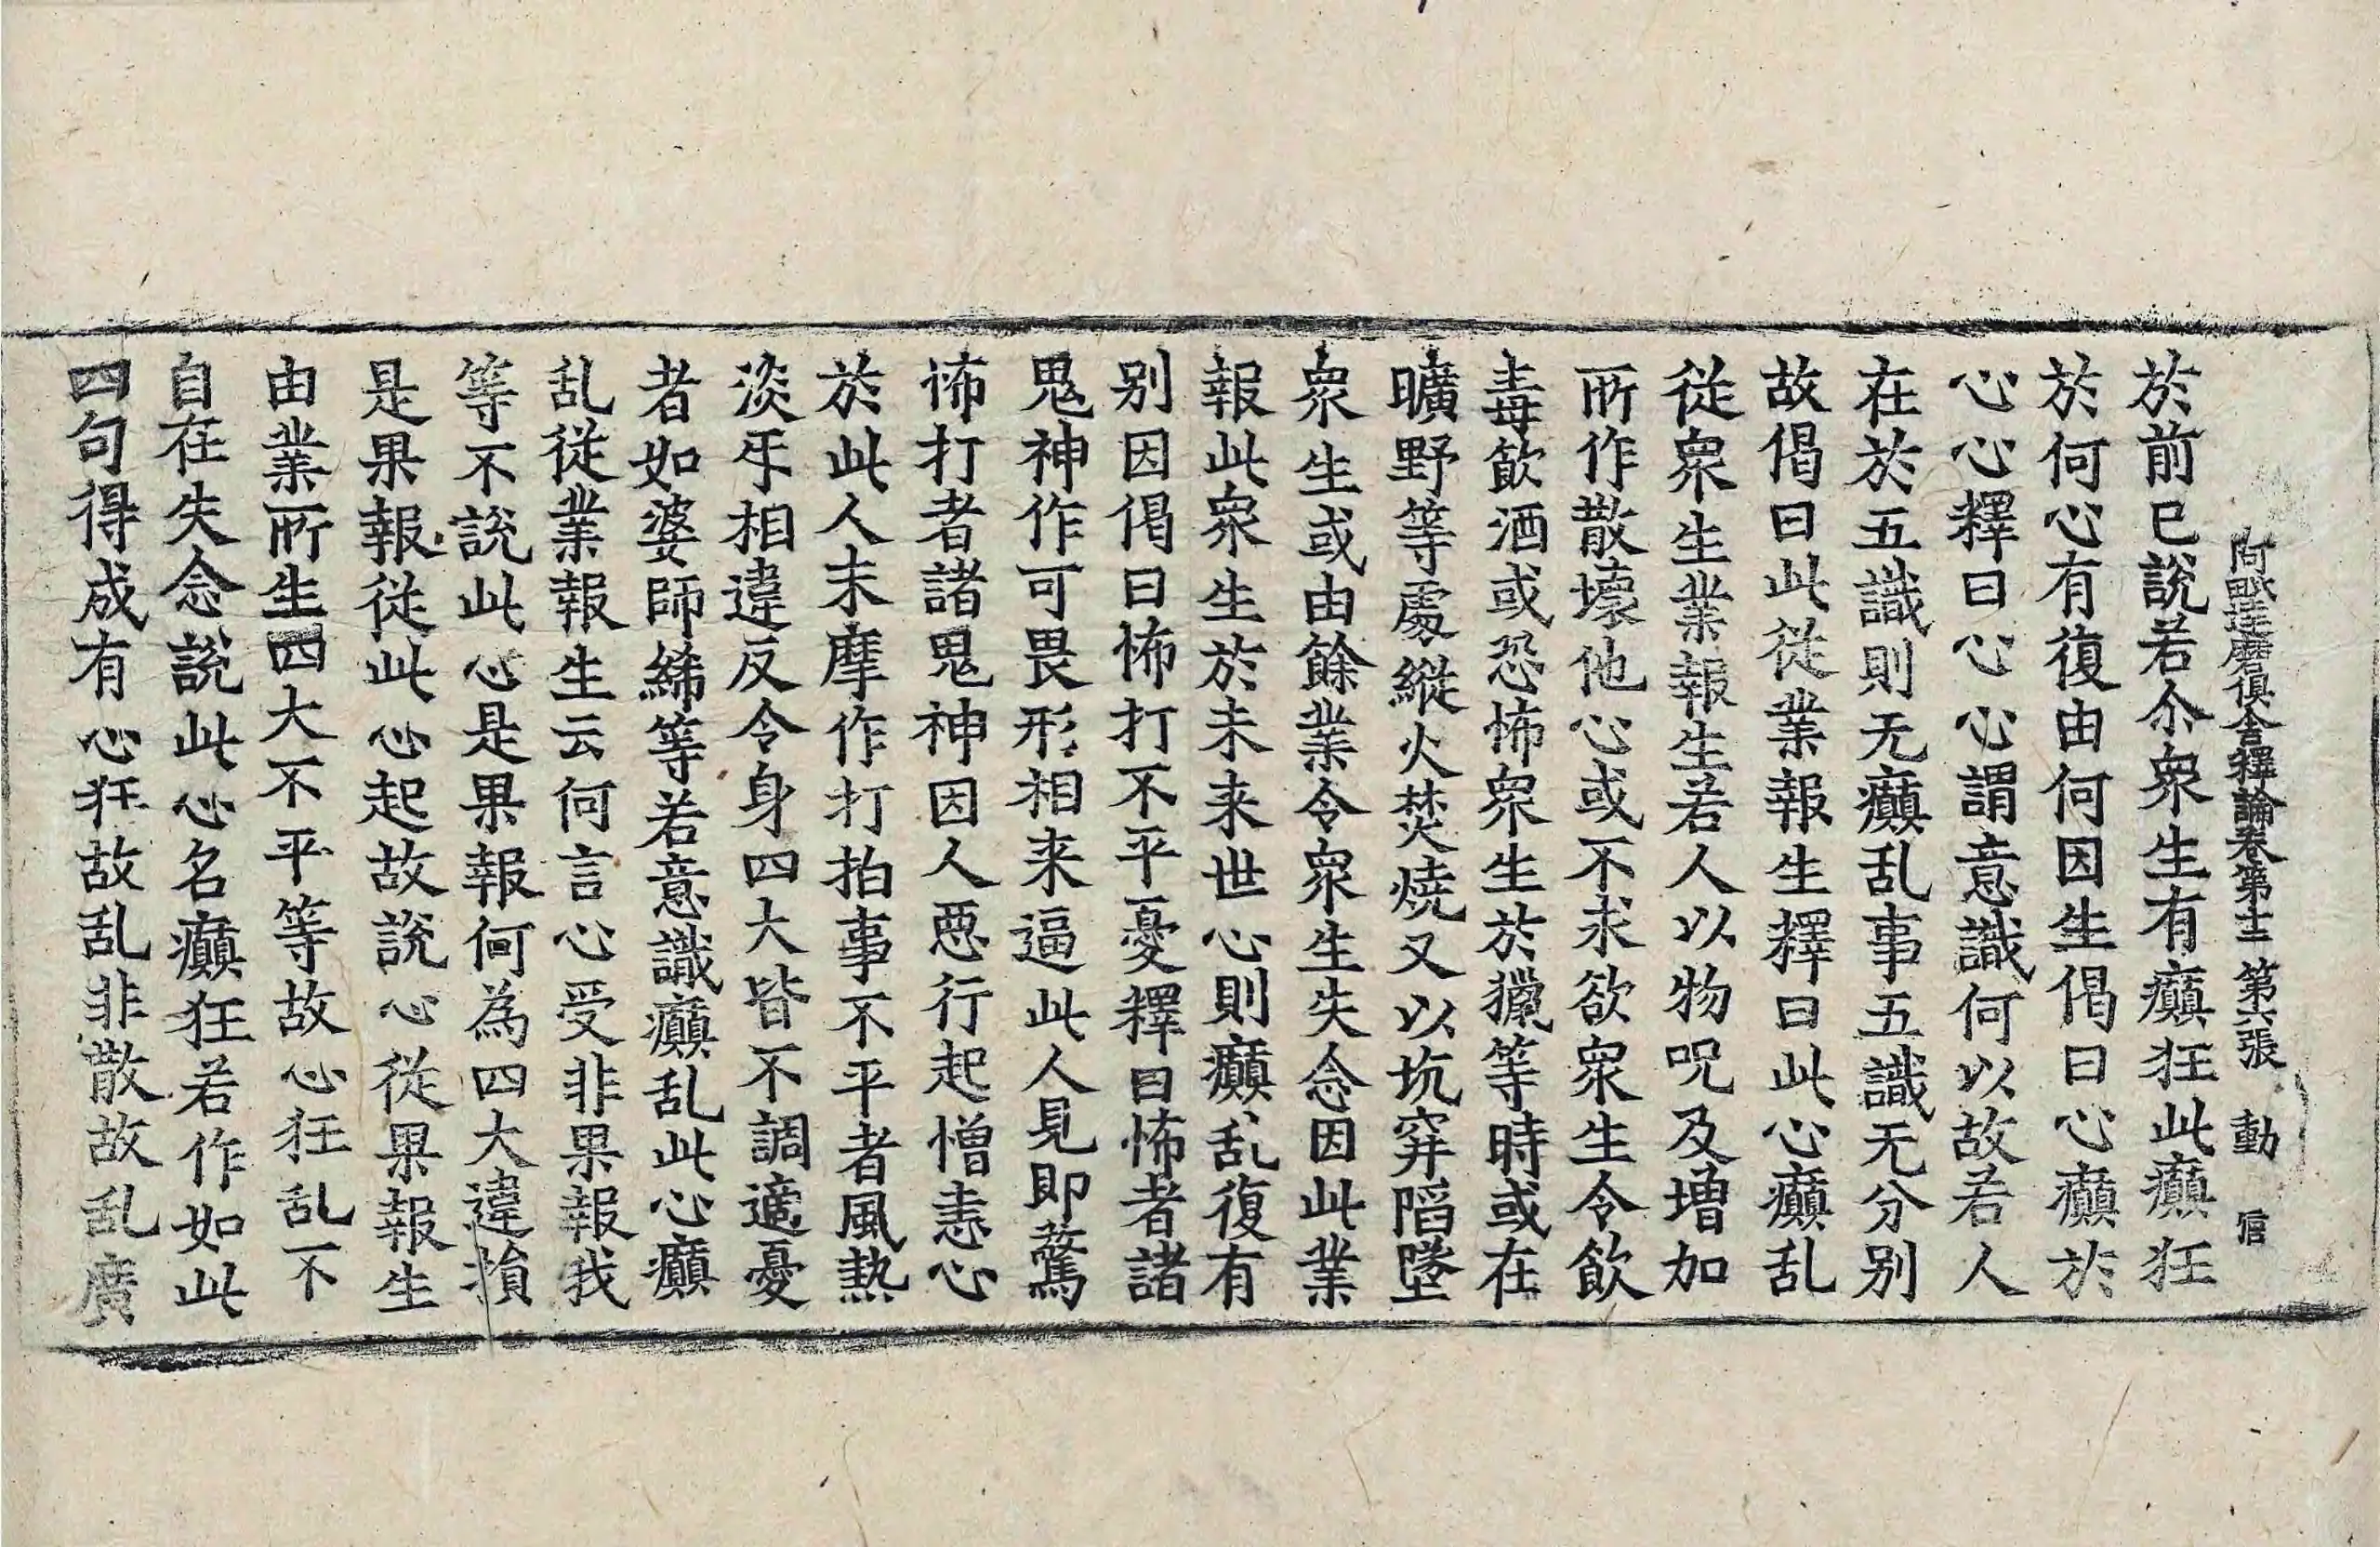 阿毗達磨俱舍釋論卷第十二 第六張 動 信
於前已說若尒衆生有癲狂此癲狂
於何心有復由何因生偈曰心癲於
心心釋曰心心謂意識何以故若人
在於五識則无癲乱事五識无分别
故偈曰此從業報生釋曰此心癲乱
從衆生業報生若人以物呪及増加
所作散壞他心或不求欲衆生令飲
毒飲酒或恐怖衆生於獵等時或在
曠野等處縱火焚燒又以坑穽陷墜
衆生或由餘業令衆生失念因此業
報此衆生於未来世心則癲乱復有
别因偈曰怖打不平憂釋曰怖者諸
鬼神作可畏形相来逼此人見即驚
怖打者諸鬼神因人惡行起憎恚心
於此人末摩作打拍事不平者風熱
淡㸦相違反令身四大皆不調適憂
者如婆師絺等若意識癲乱此心癲
乱從業報生云何言心受非果報我
等不說此心是果報何為四大違損
是果報從此心起故說心從果報生
由業所生四大不平等故心狂乱不
自在失念說此心名癲狂若作如此
四句得成有心狂故乱非散故乱廣